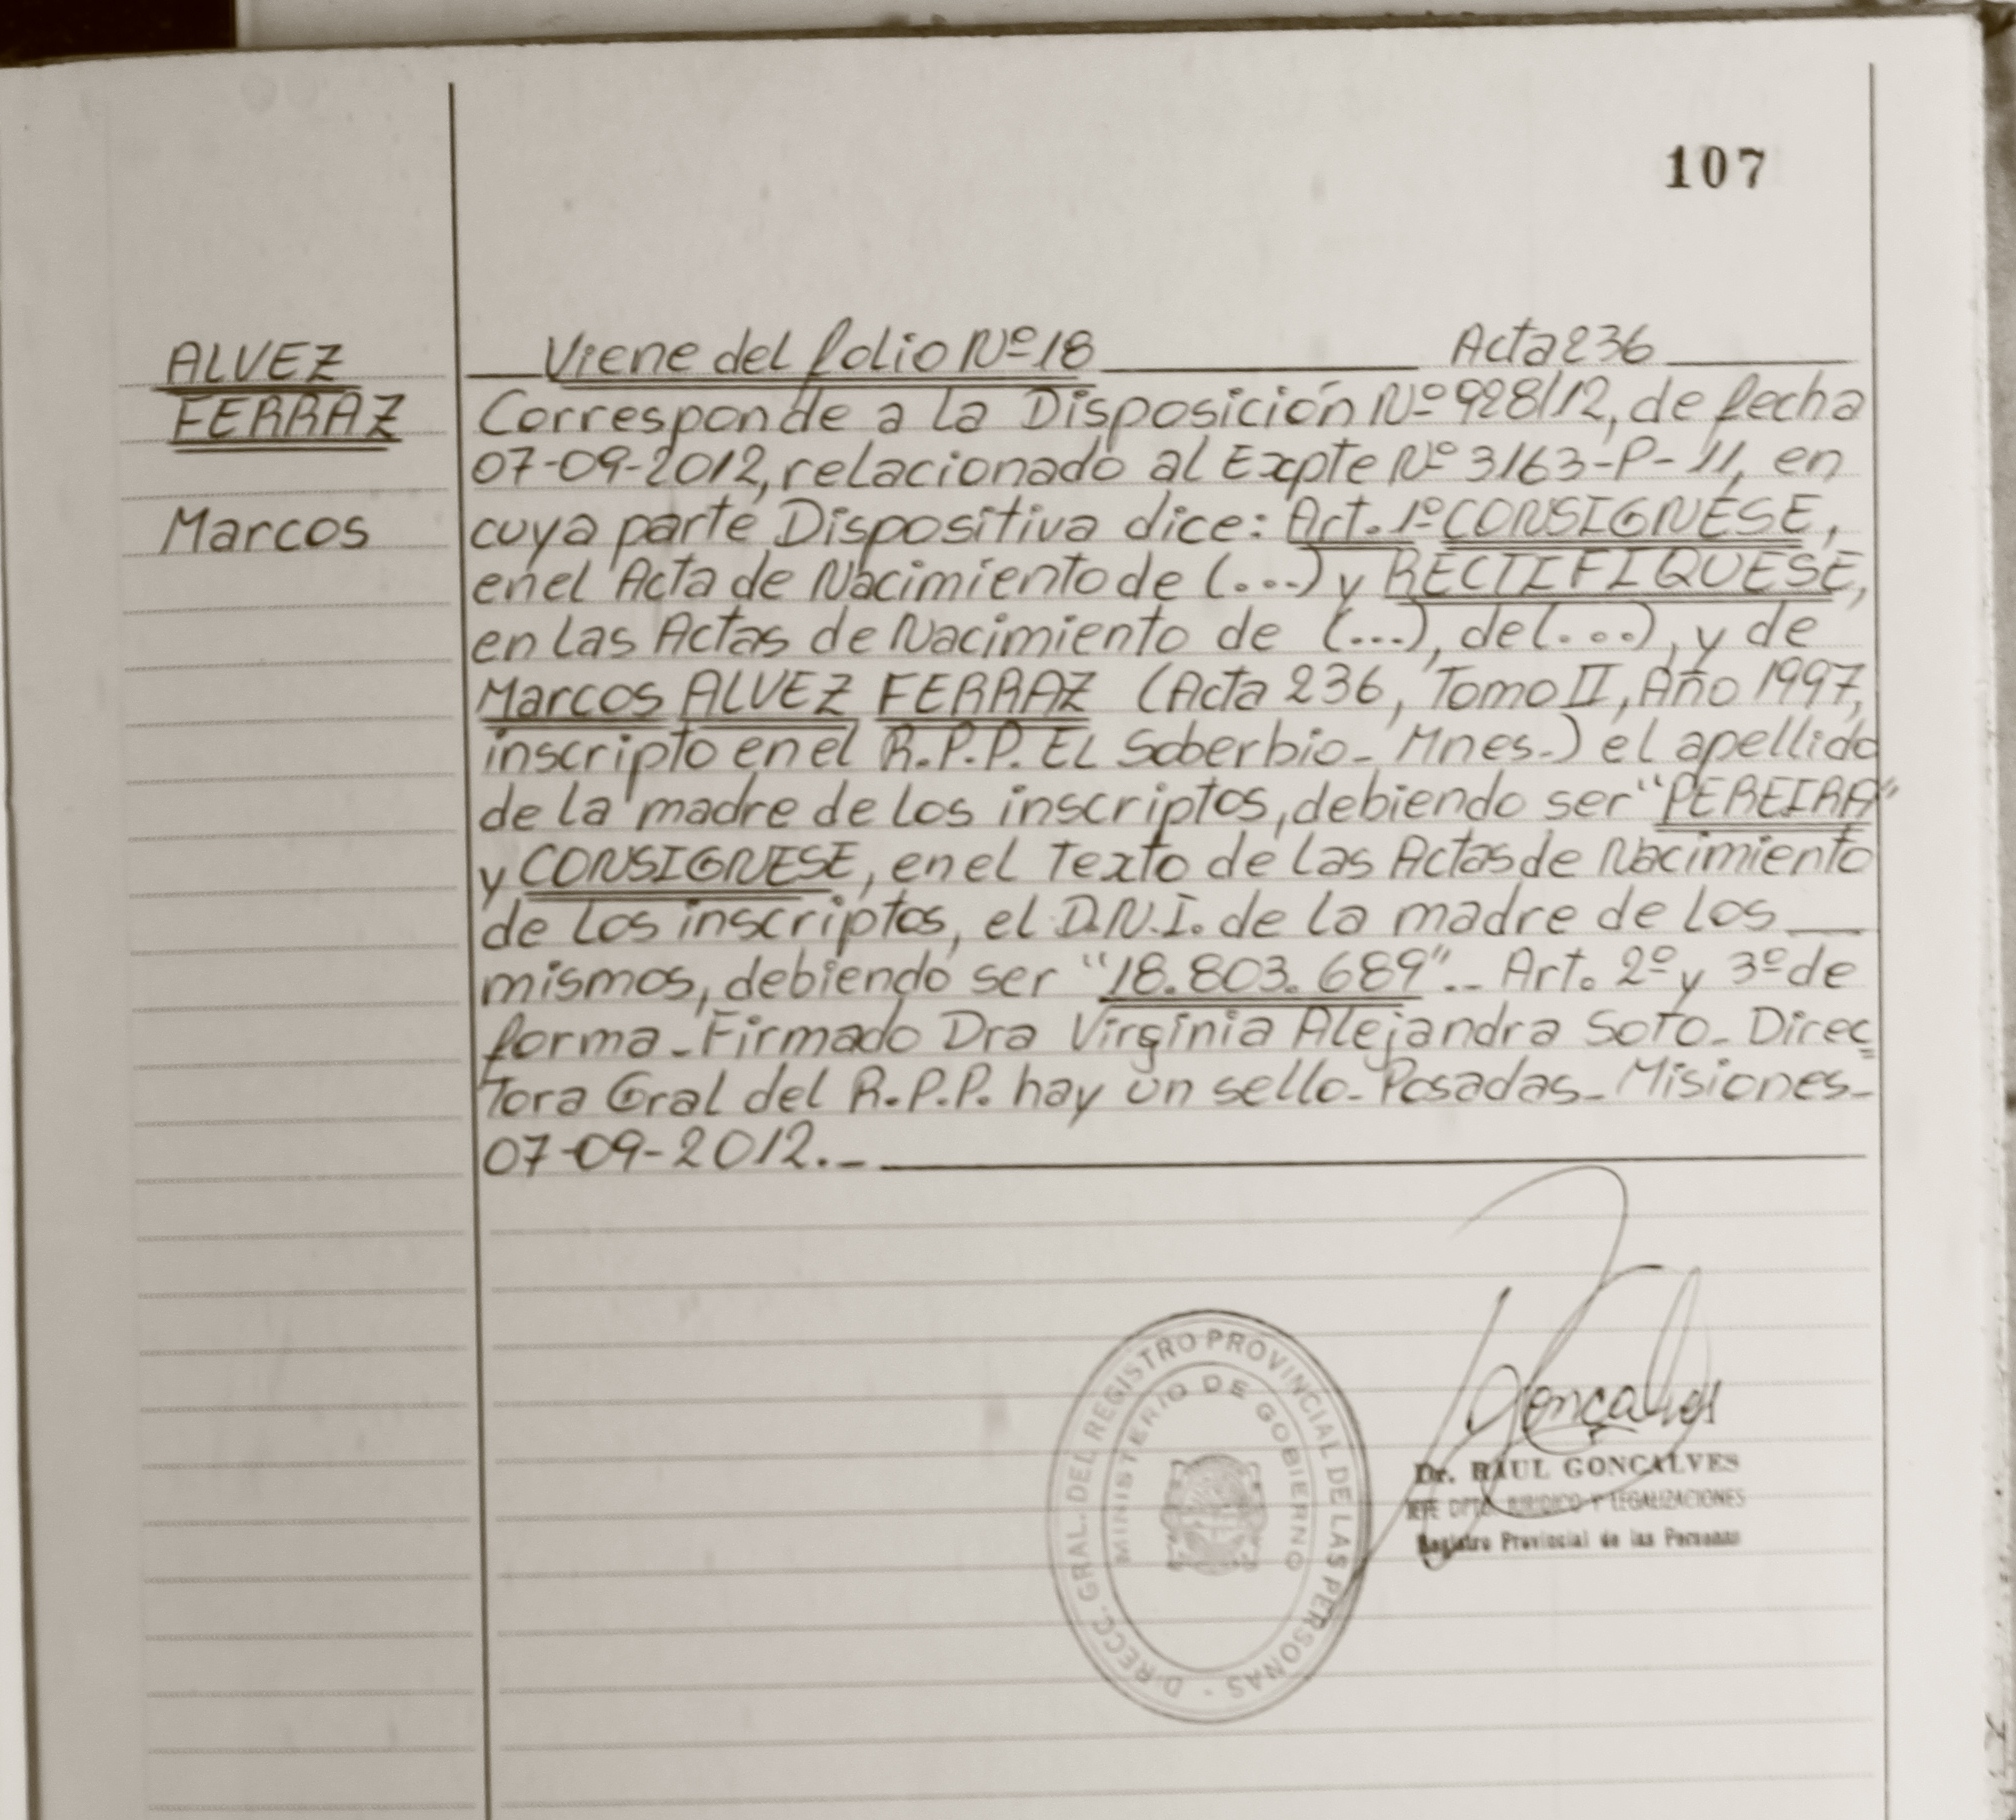 107
ALVEZ
FERRAZ
Marcos
Viene del folio Nº 18 Acta 236
Corresponde a la Disposición Nº 928/12, de fecha
07-09-2012, relacionado al Expte Nº 3163-P-11, en
cuya parte Dispositiva dice: Art. 1º CONSIGNESE,
en el Acta de Nacimiento de (...) y RECTIFIQUESE,
en las Actas de Nacimiento de (...), de (...), y de
Marcos ALVEZ FERRAZ (Acta 236, Tomo II, Año 1997,
inscripto en el R.P.P. EL Soberbio- Mnes-) el apellido
de la madre de los inscriptos, debiendo ser "PEREIRA"
y CONSIGNESE, en el Texto de las Actas de Nacimiento
de los inscriptos, el D.N.I. de la madre de los
mismos, debiendo ser "18.803.689".- Art. 2º y 3º de
forma - Firmado Dra Virginia Alejandra Soto- Direc=
tora Gral del R.P.P. hay un sello- Posadas- Misiones-
07-09-2012.-
DIRECC. GRAL. DEL REGISTRO PROVINCIAL DE LAS PERSONAS -
MINISTERIO DE GOBIERNO
Gonçalves
Dr. RAUL GONCALVES
JEFE DPTO. JURIDICO Y LEGALIZACIONES
Registro Provincial de las Personas